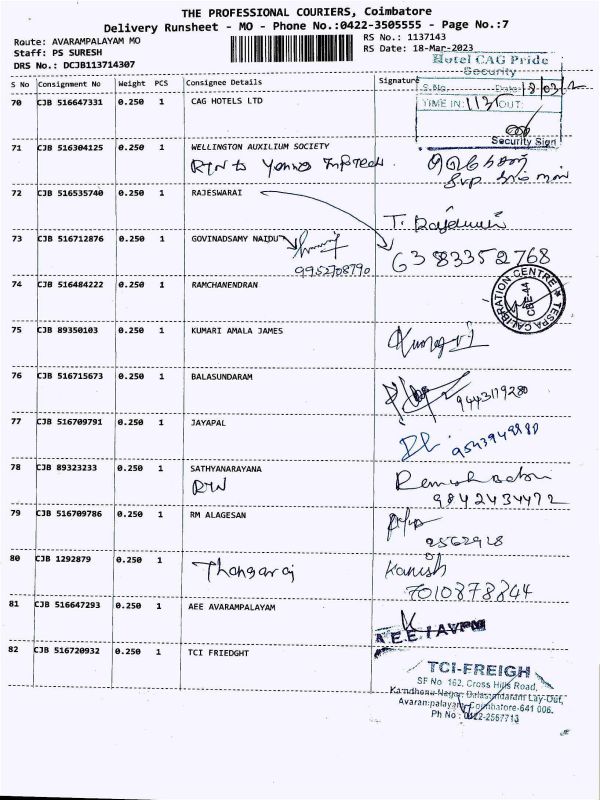 THE PROFESSIONAL COURIERS, Coimbatore
Delivery Runsheet - MO - Phone No.:0422-3505555 - Page No.:7
Route: AVARAMPALAYAM MO
RS No.: 1137143
Staff: PS SURESH
RS Date: 18-Mar-2023
DRS No.: DCJB113714307
Hotel CAG Pride
Security
S No Consignment No Weight PCS Consignee Details Signature
S.No. Date
70 CJB 516647331 0.250 1 CAG HOTELS LTD
TIME IN: OUT:
Security Sign
71 CJB 516304125 0.250 1 WELLINGTON AUXILIUM SOCIETY
RTN to
72 CJB 516535740 0.250 1 RAJESWARAI
73 CJB 516712876 0.250 1 GOVINADSAMY NAIDU
6383352768
9952708790
74 CJB 516484222 0.250 1 RAMCHANENDRAN
TESPA CALIBRATION CENTRE
CBE-44
75 CJB 89350103 0.250 1 KUMARI AMALA JAMES
76 CJB 516715673 0.250 1 BALASUNDARAM
77 CJB 516709791 0.250 1 JAYAPAL
78 CJB 89323233 0.250 1 SATHYANARAYANA
RTN
9842434472
79 CJB 516709786 0.250 1 RM ALAGESAN
80 CJB 1292879 0.250 1
Thangaraj
Kanish
7010878844
81 CJB 516647293 0.250 1 AEE AVARAMPALAYAM
A.E.E / AVPM
82 CJB 516720932 0.250 1 TCI FRIEDGHT
TCI-FREIGH
SF No. 162, Cross Hills Road,
Lay-Out,
Coimbatore-641 006.
Ph No : 0422-2567713